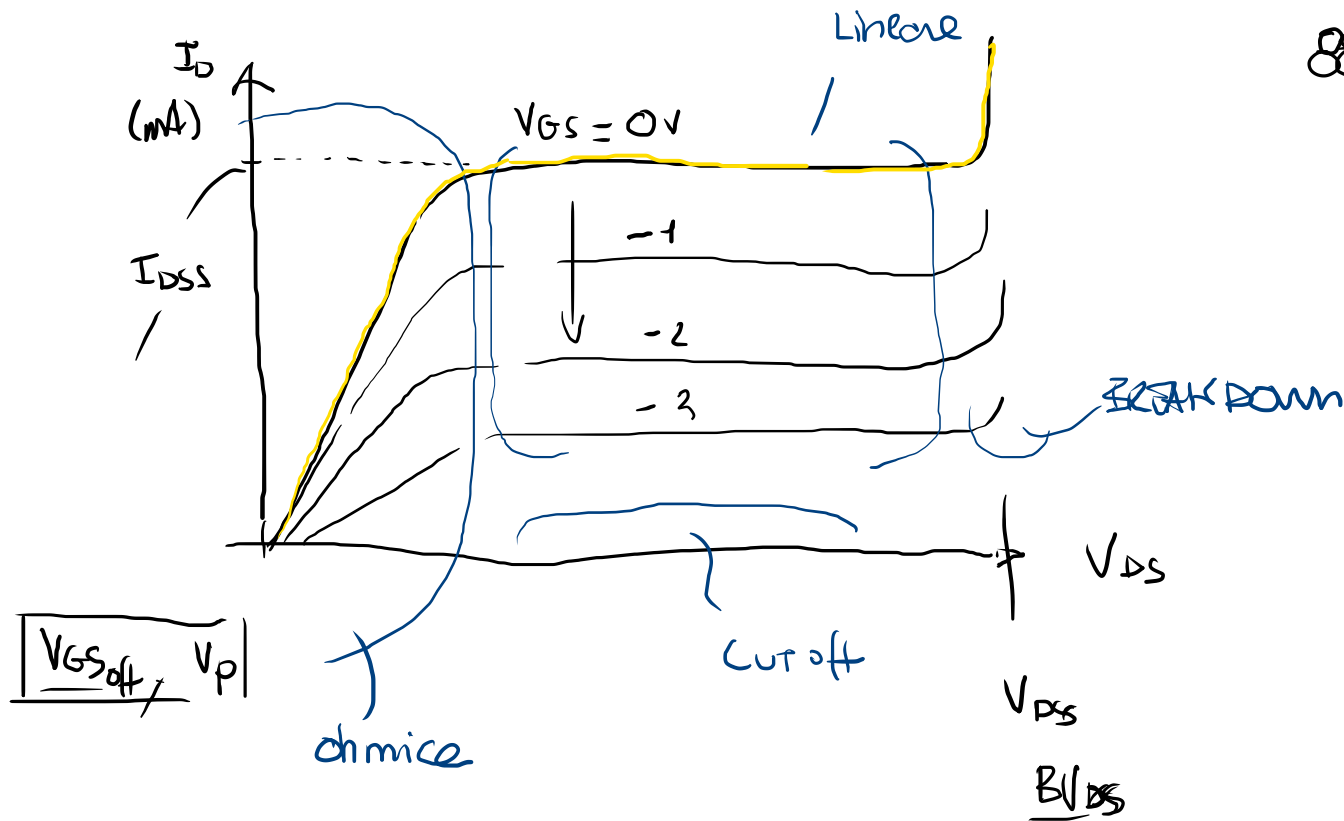 Lineare
I_D
(mA)
V_GS = 0V
-1
I_DSS
-2
-3
BREAKDOWN
V_DS
V_GS off, V_P
Cut off
V_DSS
ohmica
BV_DSS